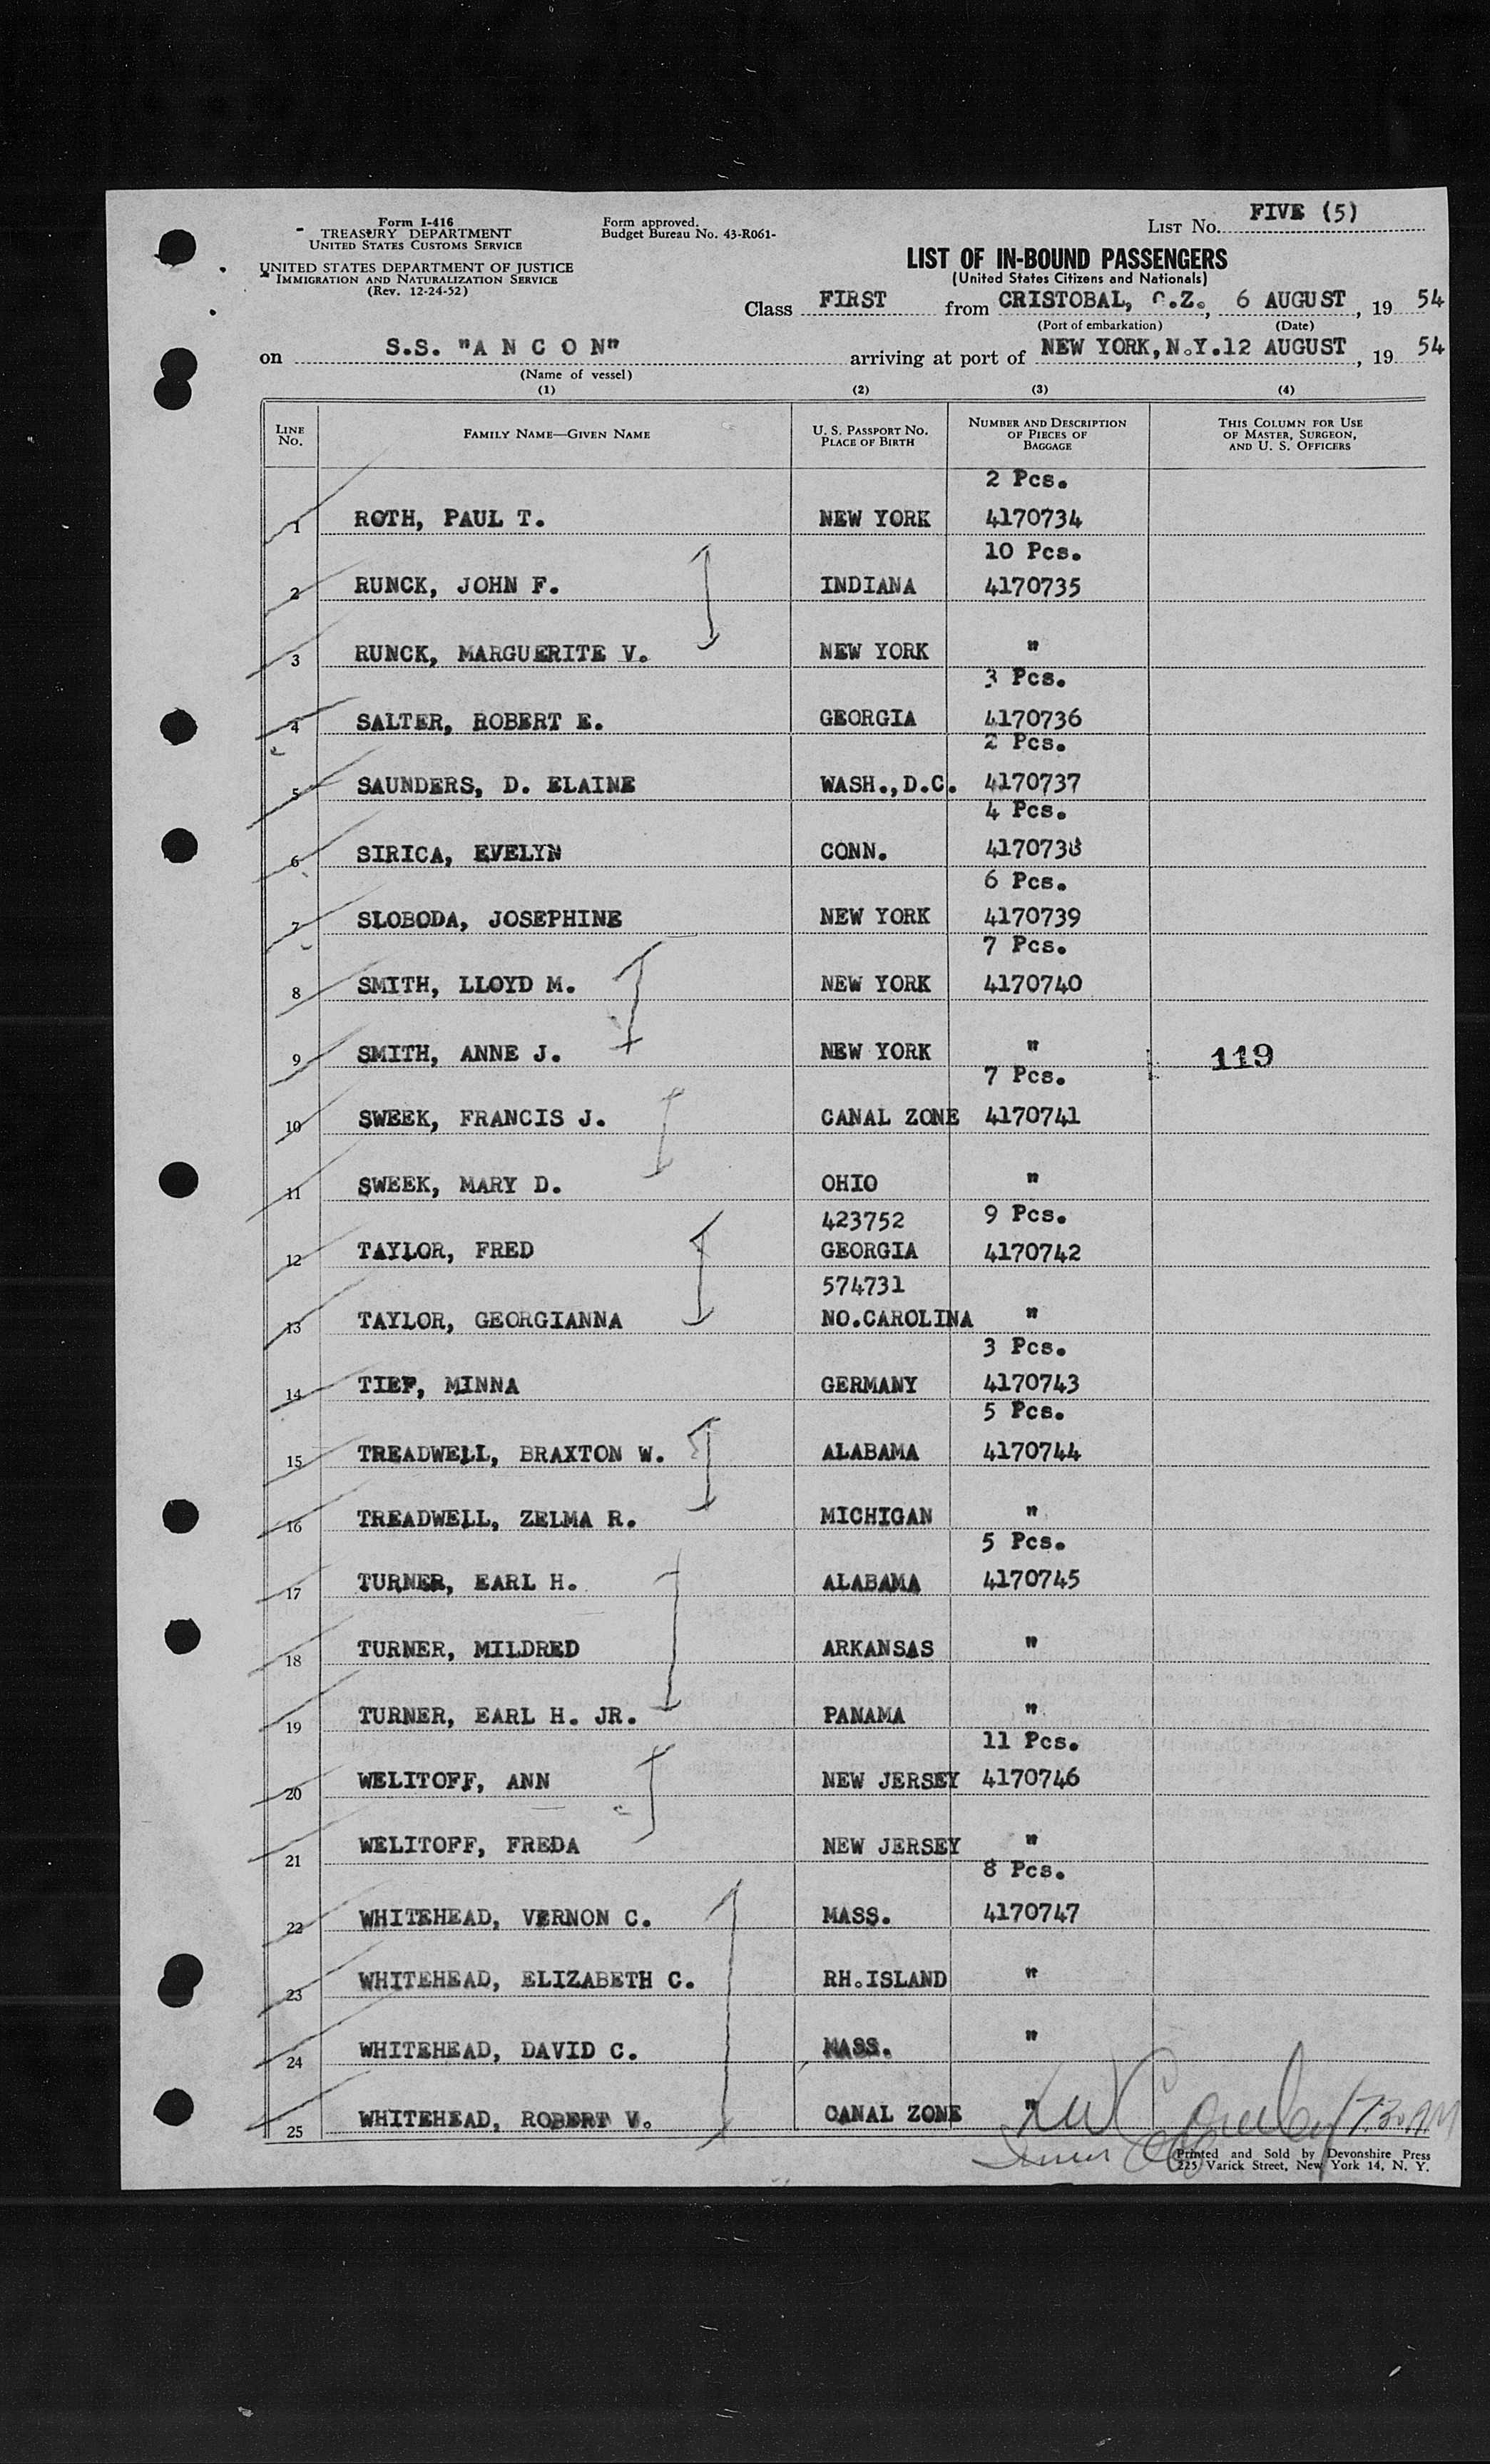 Form I-416
TREASURY DEPARTMENT
UNITED STATES CUSTOMS SERVICE
UNITED STATES DEPARTMENT OF JUSTICE
IMMIGRATION AND NATURALIZATION SERVICE
(Rev. 12-24-52)
Form approved.
Budget Bureau No. 43-R061-
LIST NO. FIVE (5)
LIST OF IN-BOUND PASSENGERS
(United States Citizens and Nationals)
Class FIRST from CRISTOBAL, C.Z., 6 AUGUST, 19 54
(Port of embarkation) (Date)
on S.S. "A N C O N" arriving at port of NEW YORK, N.Y. 12 AUGUST, 19 54
(Name of vessel)
(1) (2) (3) (4)
LINE NO. FAMILY NAME—GIVEN NAME U. S. PASSPORT NO. PLACE OF BIRTH NUMBER AND DESCRIPTION OF PIECES OF BAGGAGE THIS COLUMN FOR USE OF MASTER, SURGEON, AND U. S. OFFICERS
2 Pcs.
1 ROTH, PAUL T. NEW YORK 4170734
10 Pcs.
2 RUNCK, JOHN F. INDIANA 4170735
3 RUNCK, MARGUERITE V. NEW YORK "
3 Pcs.
4 SALTER, ROBERT E. GEORGIA 4170736
2 Pcs.
5 SAUNDERS, D. ELAINE WASH.,D.C. 4170737
4 Pcs.
6 SIRICA, EVELYN CONN. 4170738
6 Pcs.
7 SLOBODA, JOSEPHINE NEW YORK 4170739
7 Pcs.
8 SMITH, LLOYD M. NEW YORK 4170740
9 SMITH, ANNE J. NEW YORK " 119
7 Pcs.
10 SWEEK, FRANCIS J. CANAL ZONE 4170741
11 SWEEK, MARY D. OHIO "
423752 9 Pcs.
12 TAYLOR, FRED GEORGIA 4170742
574731
13 TAYLOR, GEORGIANNA NO.CAROLINA "
3 Pcs.
14 TIEF, MINNA GERMANY 4170743
5 Pcs.
15 TREADWELL, BRAXTON W. ALABAMA 4170744
16 TREADWELL, ZELMA R. MICHIGAN "
5 Pcs.
17 TURNER, EARL H. ALABAMA 4170745
18 TURNER, MILDRED ARKANSAS "
19 TURNER, EARL H. JR. PANAMA "
11 Pcs.
20 WELITOFF, ANN NEW JERSEY 4170746
21 WELITOFF, FREDA NEW JERSEY "
8 Pcs.
22 WHITEHEAD, VERNON C. MASS. 4170747
23 WHITEHEAD, ELIZABETH C. RH.ISLAND "
24 WHITEHEAD, DAVID C. MASS. "
25 WHITEHEAD, ROBERT V. CANAL ZONE "
7:30 AM
Printed and Sold by Devonshire Press
225 Varick Street, New York 14, N. Y.